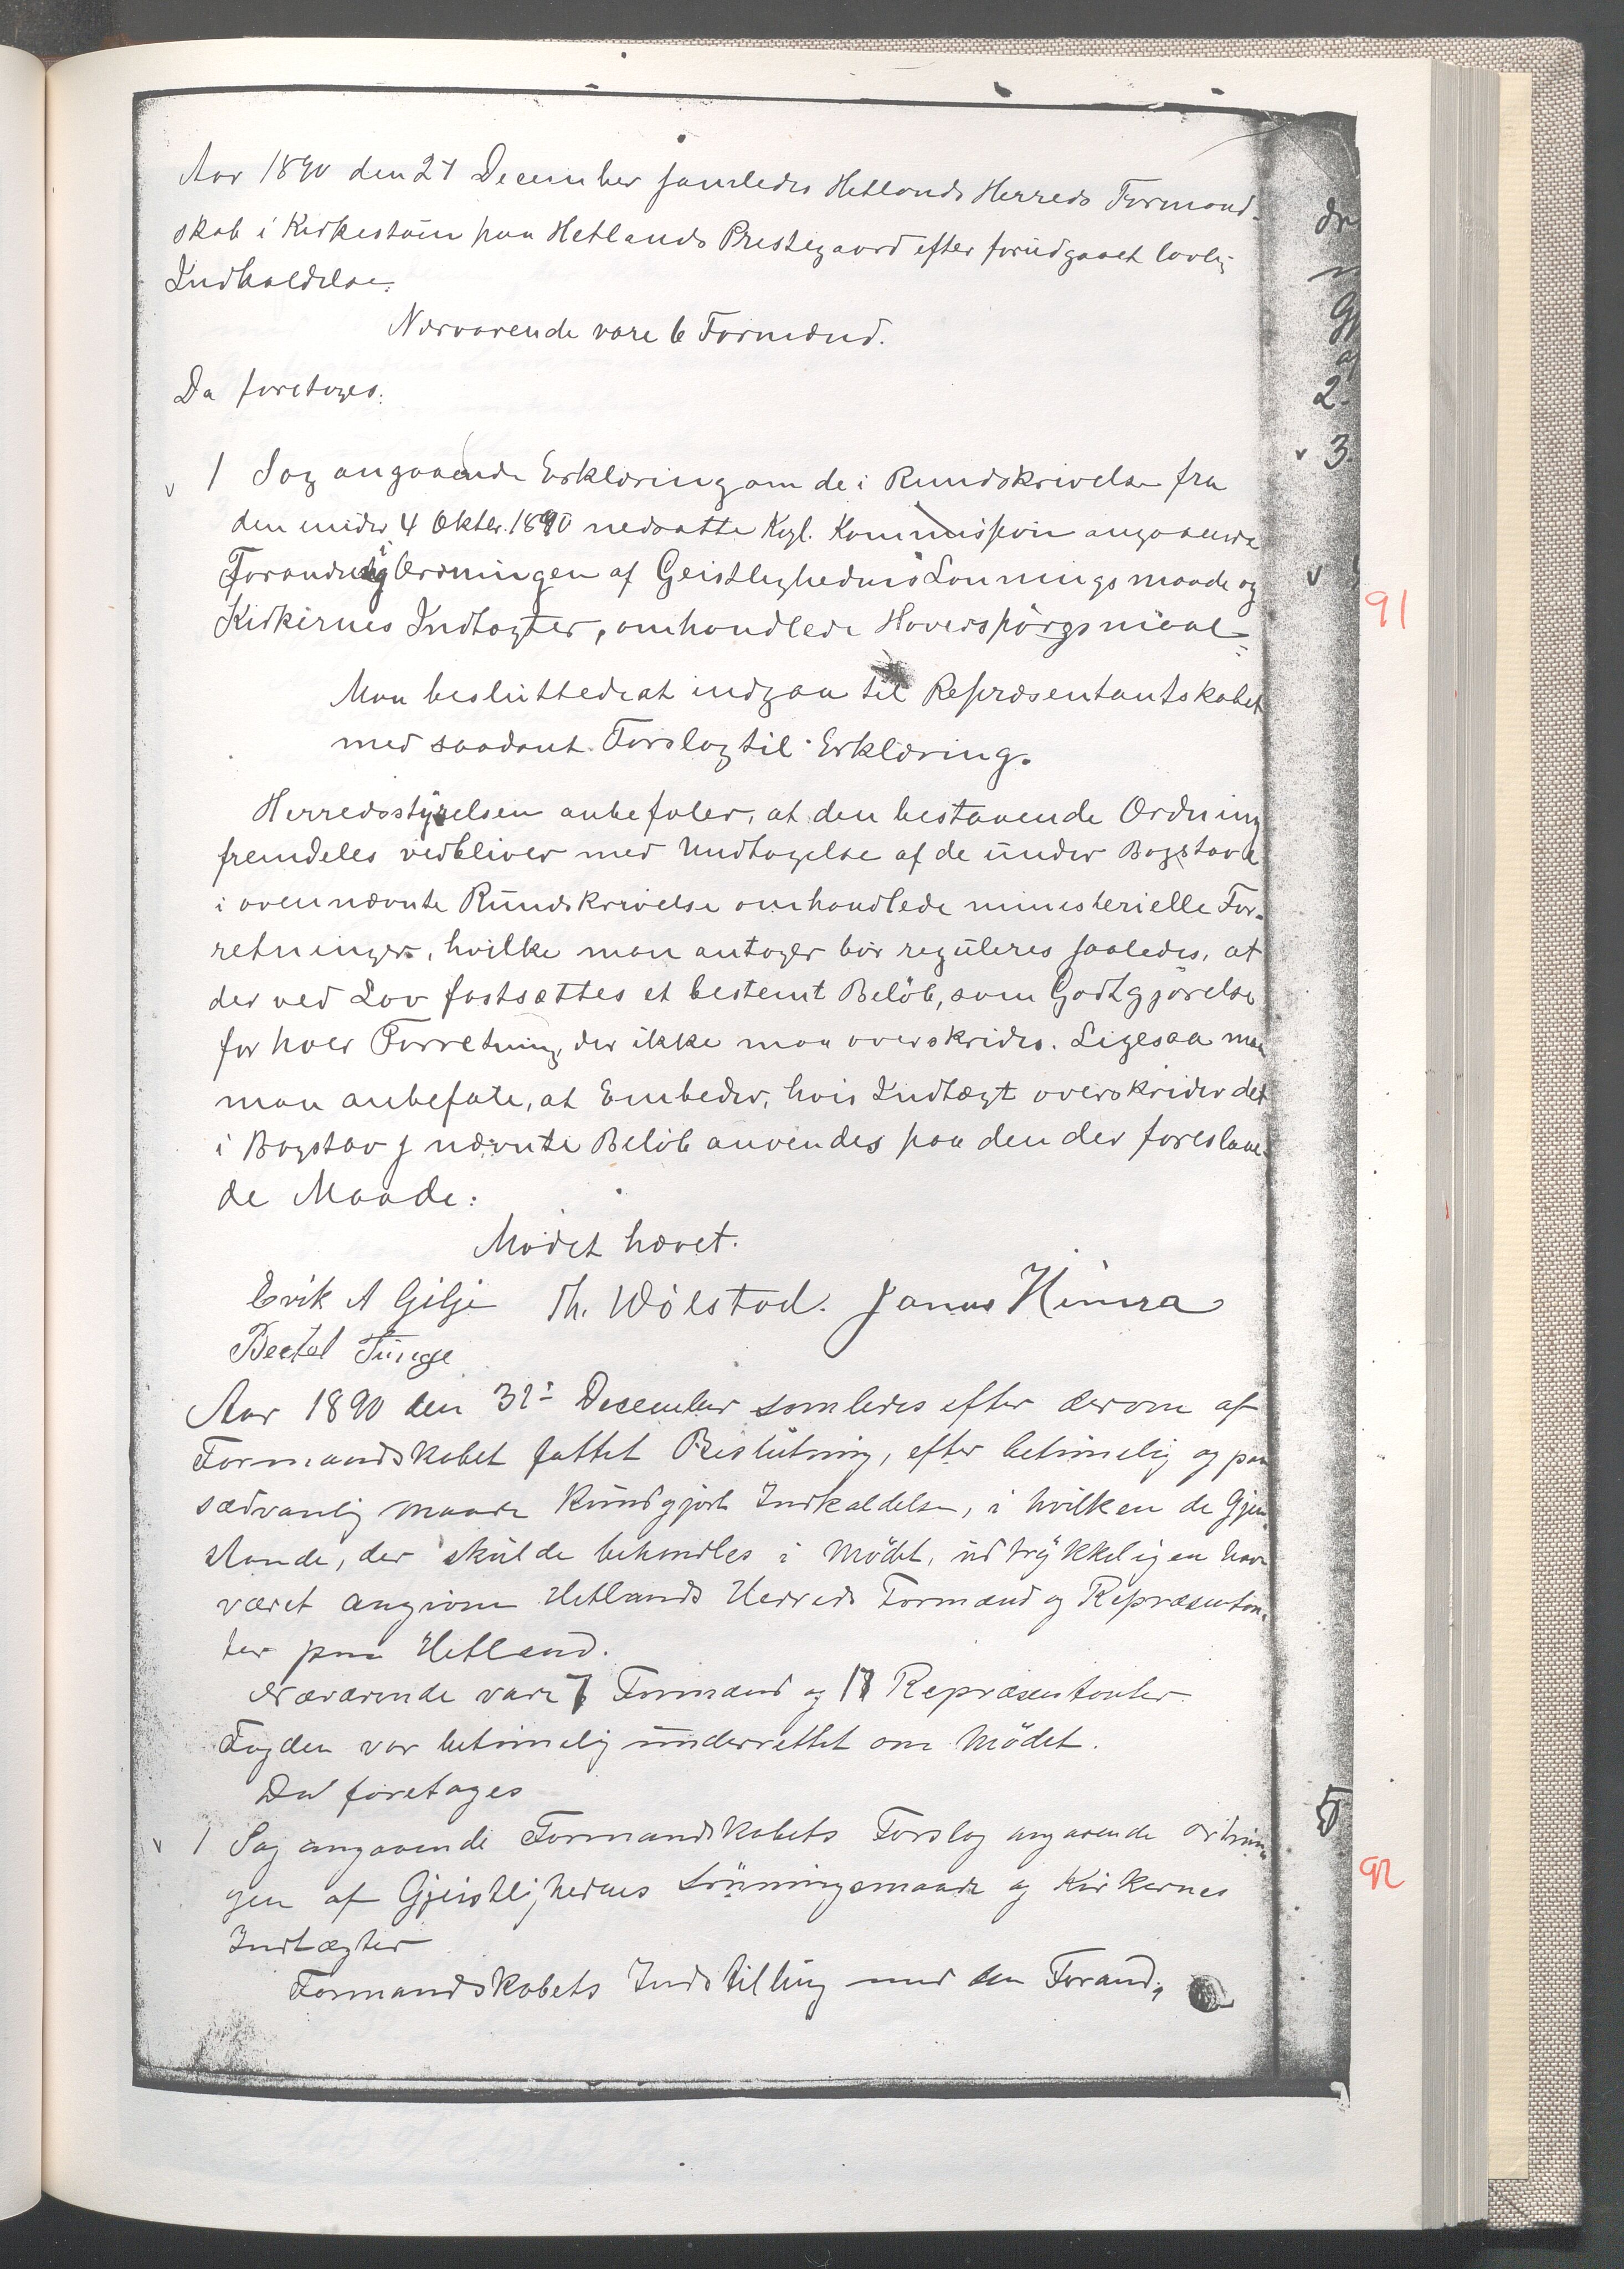 Aar 1890 den 27 December samledes Hetlands Herreds Formand-
skab i Kirkestuen paa Hetlands Prestegaard efter forudgaaet lovlig
Indkaldelse.
Nærværende vare 6 Formænd.
Da foretoges:
v 1 Sag angaaende Erklæring om de i Rundskrivelse fra
den under 4 Oktbr. 1890 nedsatte Kgl. Kommission angaaende
Forandring Ordningen af Geistlighedens Lønningsmaade og
Kirkernes Indtægter, omhandlede Hovedspørgsmaal
Man besluttede at indgaa til Repræsentantskabet
med saadant Forslag til Erklæring.
Herredsstyrelsen anbefaler, at den bestaaende Ordning
fremdeles vedbliver med Undtagelse af de under Bogstav a
i ovennævnte Rundskrivelse omhandlede ministerielle For-
retninger, hvilke man antager bør reguleres saaledes, at
der ved Lov fastsættes et bestemt Beløb, som Godtgjørelse
for hver Forretning, der ikke maa overskrides. Ligesaa maa
man anbefale, at Embeder, hvis Indtægt overskrider det
i Bogstav j nævnte Beløb anvendes paa den der foreslaae-
de Maade:
Mødet hævet.
Erik A Gilje Th. Wølstad. Janus Hinna
Bertel Tunge
Aar 1890 den 31- December samledes efter derom af
Formandskabet fattet Beslutning, efter betimelig og paa
sædvanlig Maade kundgjort Indkaldelse, i hvilken de Gjen-
stande, der skulde behandles i Mødet, udtrykkeligen have
været angivne Hetlands Herreds Formænd og Repræsentan-
ter paa Hetland.
Nærværende vare 7 Formænd og 17 Repræsentanter.
Fogden var betimelig underrettet om Mødet.
Da foretages
v 1 Sag angaaende Formandskabets Forslag angaaende Ordnin-
gen af Gjeistlighedens Lønningsmaade og Kirkernes
Indtægter
Formandskabets Indstilling med den Forand,
2.
v 3
v
91
5
92